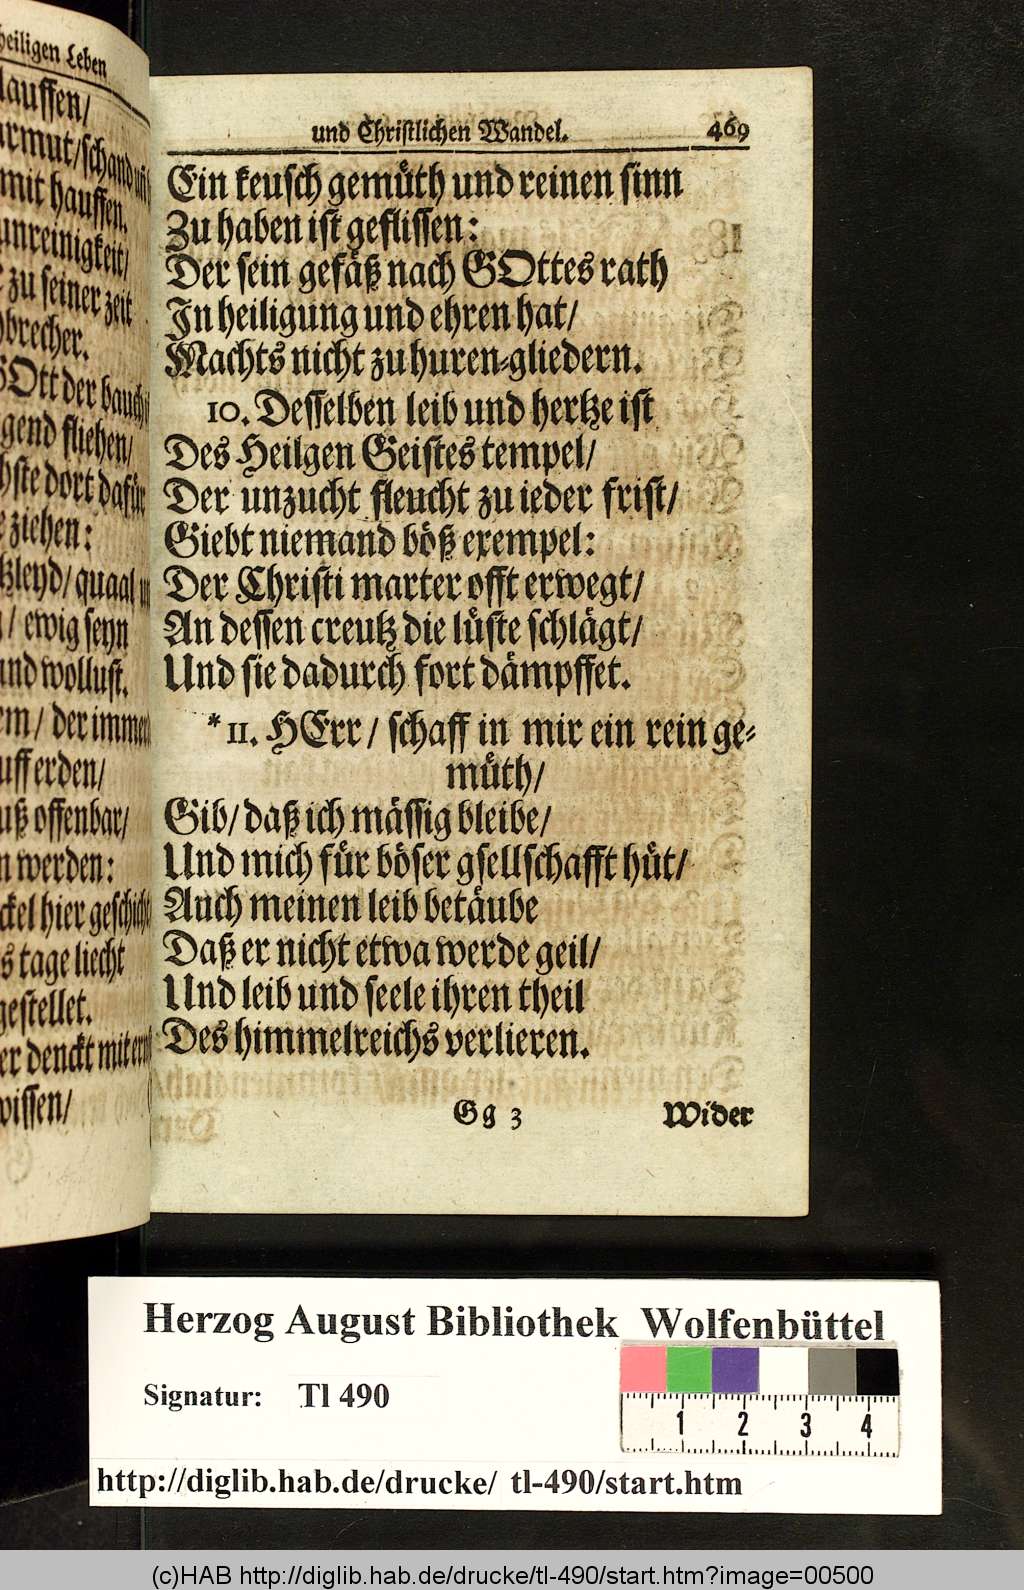 heiligen Leben
lauffen/
armut/schand
mit hauffen.
unreinigkeit/
zu seiner zeit
brecher.
GOtt der bauch
gend fliehen/
chste dort dafür
ziehen:
ewig seyn
und wollust.
der immer
uff erden/
offenbar/
n werden:
hier geschicht
s tage liecht
gestellet.
er denckt mit
wissen/
und Christlichen Wandel. 469
Ein keusch gemüth und reinen sinn
Zu haben ist geflissen:
Der sein gefäß nach GOttes rath
In heiligung und ehren hat/
Machts nicht zu huren-gliedern.
10. Desselben leib und hertze ist
Des Heilgen Geistes tempel/
Der unzucht fleucht zu ieder frist/
Giebt niemand böß exempel:
Der Christi marter offt erwegt/
An dessen creutz die lüste schlägt/
Und sie dadurch fort dämpffet.
* 11. HErr/ schaff in mir ein rein ge-
müth/
Gib/ daß ich mässig bleibe/
Und mich für böser gsellschafft hüt/
Auch meinen leib betäube
Daß er nicht etwa werde geil/
Und leib und seele ihren theil
Des himmelreichs verlieren.
Gg 3 Wider
Herzog August Bibliothek Wolfenbüttel
Signatur: Tl 490
1 2 3 4
http://diglib.hab.de/drucke/ tl-490/start.htm
(c)HAB http://diglib.hab.de/drucke/tl-490/start.htm?image=00500